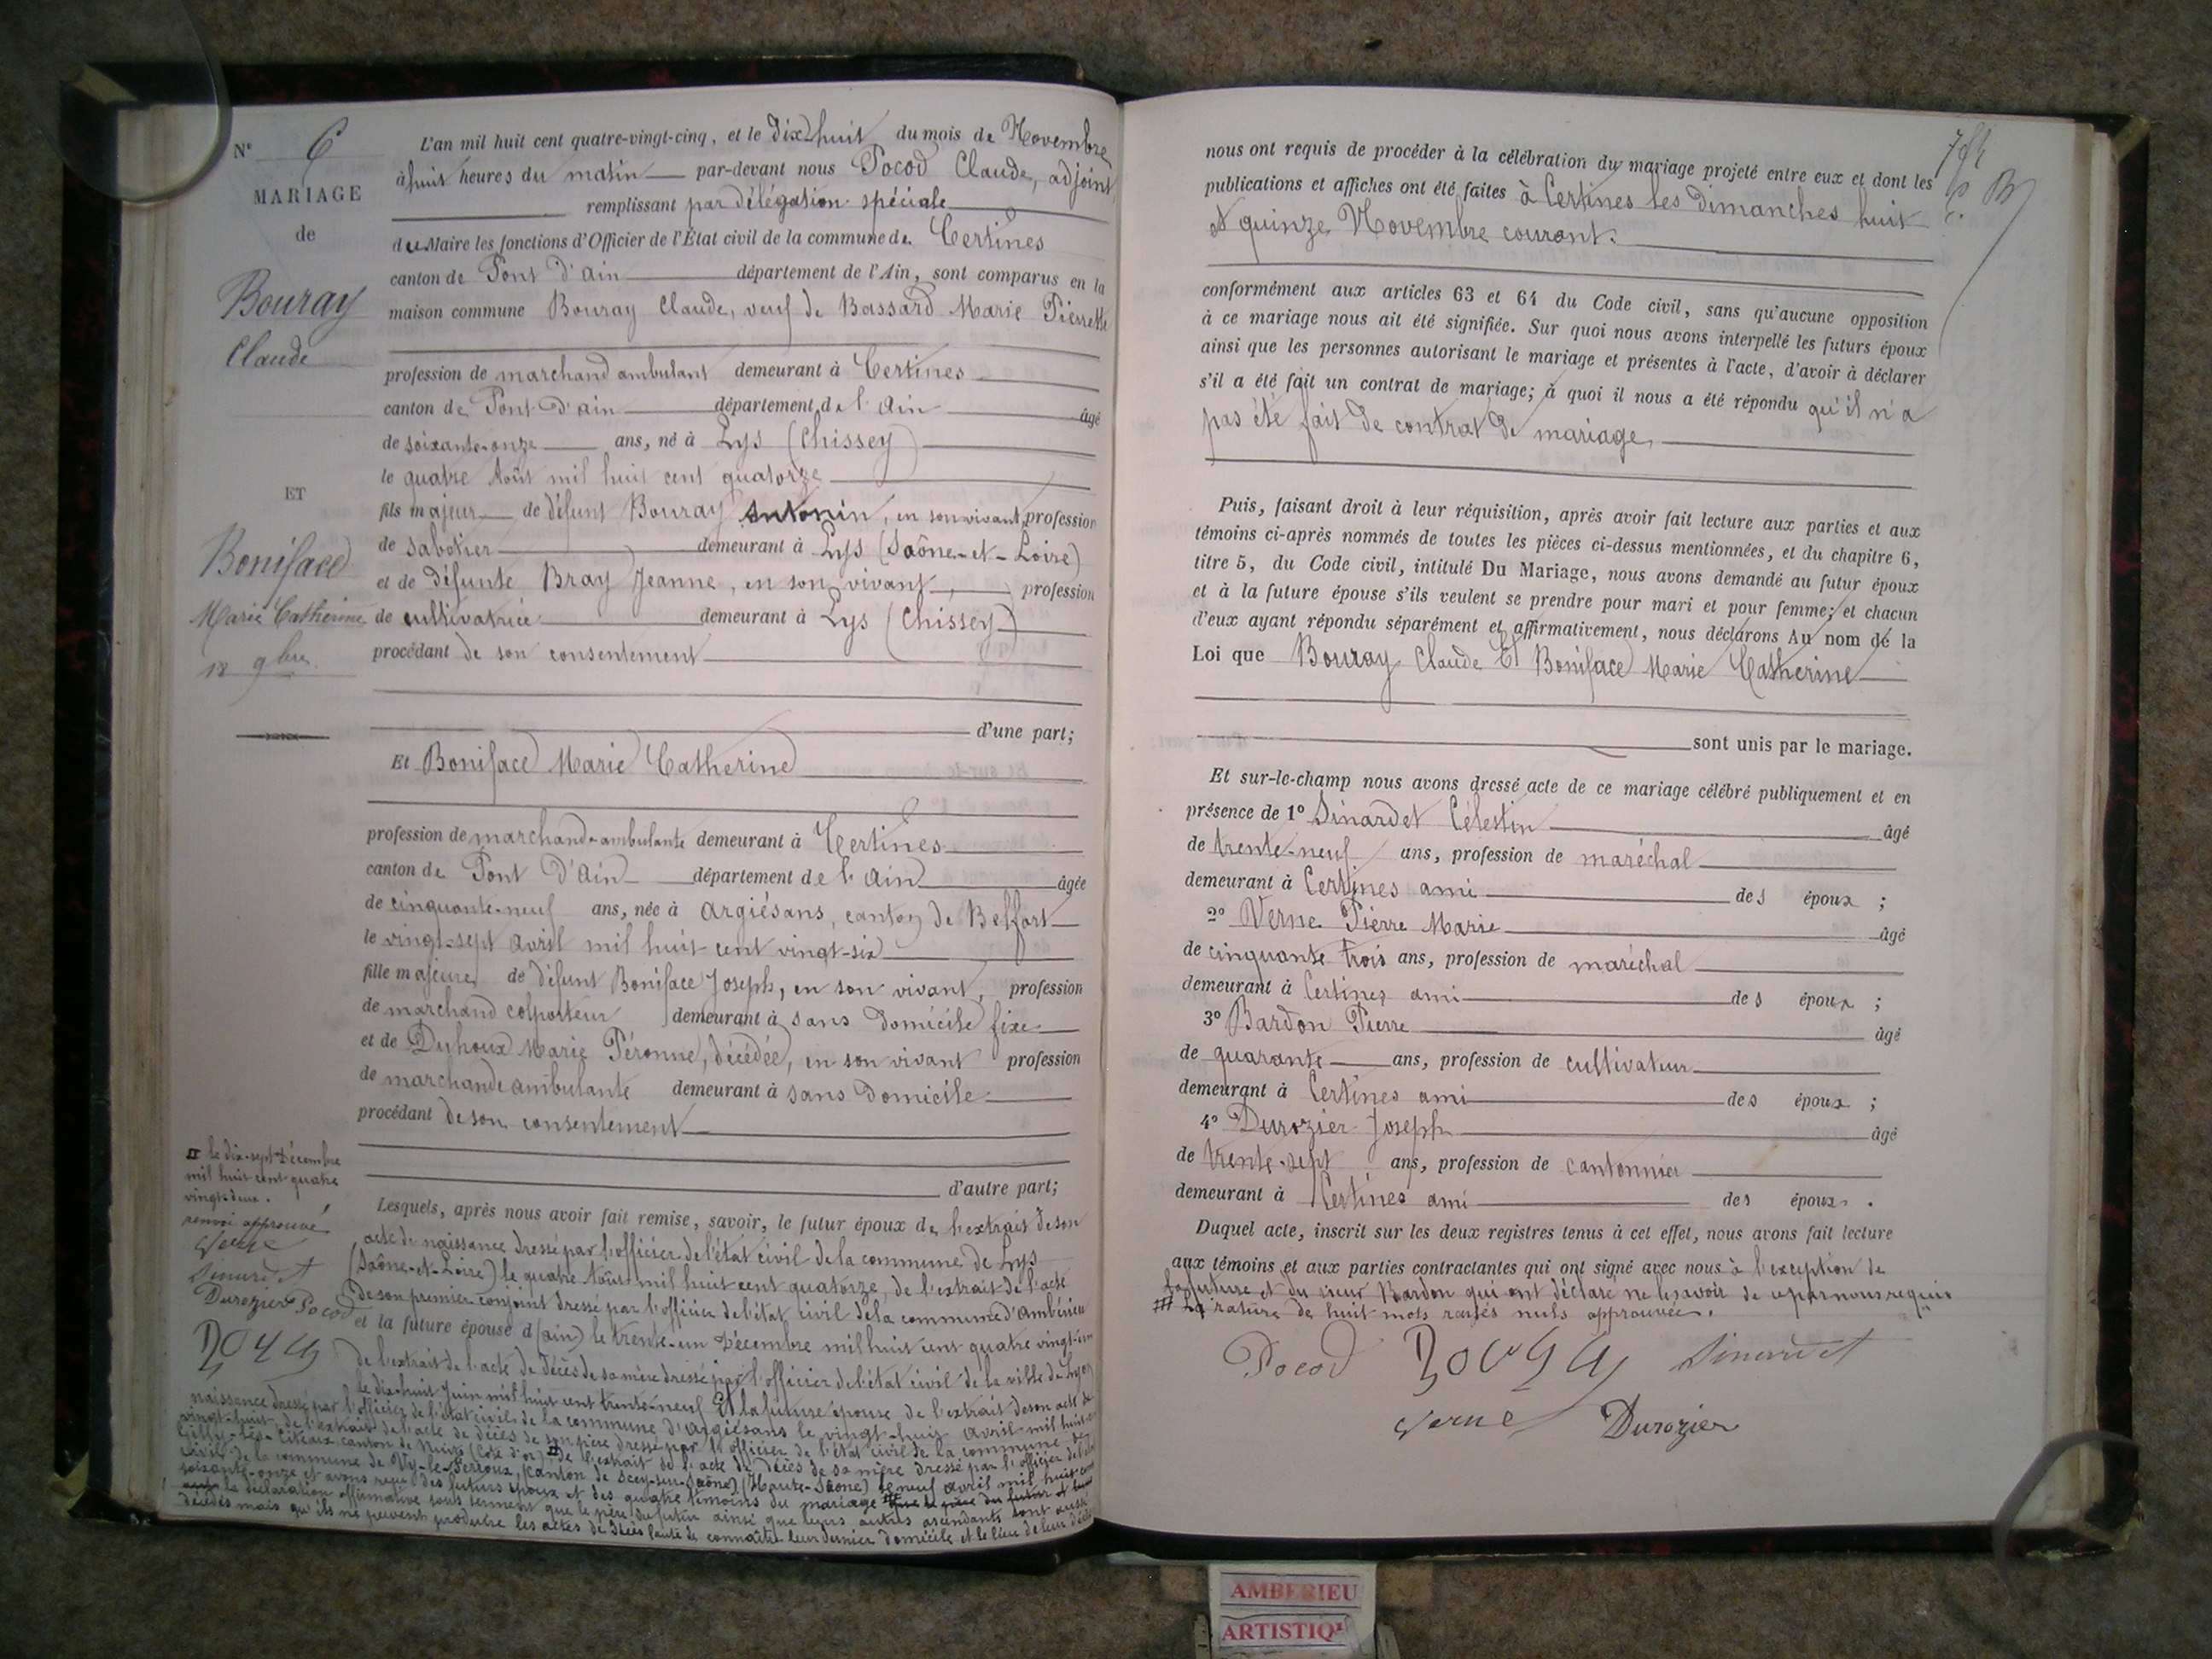 N° 6
MARIAGE
de
Bouray
Claude
ET
Boniface
Marie Catherine
18 9bre
L'an mil huit cent quatre-vingt-cinq, et le dix-huit du mois de Novembre
à huit heures du matin par-devant nous Pocod Claude, adjoint
remplissant par délégation spéciale
du Maire les fonctions d'Officier de l'État civil de la commune de Certines
canton de Pont d'ain département de l'Ain, sont comparus en la
maison commune Bouray Claude, veuf de Bassard Marie Pierrette
profession de marchand ambulant demeurant à Certines
canton de Pont-D'ain département de l'Ain âgé
de soixante-onze ans, né à Lys (Chissey)
le quatre Août mil huit cent quatorze
fils majeur de défunt Bouray Antonin, en son vivant, profession
de sabotier demeurant à Lys (Saône-et-Loire)
et de défunte Bray Jeanne, en son vivant, profession
de cultivatrice demeurant à Lys (Chissey)
procédant de son consentement
d'une part;
Et Boniface Marie Catherine
profession de marchand-ambulante demeurant à Certines
canton de Pont D'Ain département de l'Ain âgée
de cinquante-neuf ans, née à Argiésans, canton de Belfort
le vingt-sept avril mil huit cent vingt-six
fille majeure de défunt Boniface Joseph, en son vivant, profession
de marchand colporteur demeurant à sans domicile fixe
et de Duhoux Marie Péronne, décédée, en son vivant profession
de marchande ambulante demeurant à sans domicile
procédant de son consentement
d'autre part;
le dix-sept Décembre
mil huit cent quatre
vingt-deux.
renvoi approuvé
Verne
Sinardet
Durozier Pocod
Bouray
Lesquels, après nous avoir fait remise, savoir, le futur époux de l'extrait de son
acte de naissance dressé par l'officier de l'état civil de la commune de Lys
(Saône-et-Loire) le quatre Août mil huit cent quatorze, de l'extrait de l'acte
de son premier conjoint dressé par l'officier de l'état civil de la commune d'Ambérieu
et la future épouse d (ain) le trente-un Décembre mil huit cent quatre vingt-un
de l'extrait de l'acte de décès de sa mère dressé par l'officier de l'état civil de la ville de Lyon
le dix-huit Juin mil huit cent trente-neuf Et la future épouse de l'extrait de son acte de
naissance dressé par l'officier de l'état civil de la commune d'Argiésans le vingt-huit avril mil huit cent
vingt-huit de l'extrait de l'acte de décès de son père dressé par l'officier de l'état civil de la commune de
Gilly-les-Citeaux canton de Nuits (Côte d'or) de l'extrait de l'acte de décès de sa mère dressé par l'officier de l'état
civil de la commune de Vy-le-Ferroux, (canton de Scey-sur-Saône) (Haute-Saône) le neuf avril mil huit cent
soixante-onze et avons reçu des futurs époux et des quatre témoins du mariage que le père du futur et
la déclaration affirmative sous serment que le père du futur ainsi que leurs autres ascendants sont aussi
décédés mais qu'ils ne peuvent produire les actes de décès faute de connaître leur dernier domicile et le lieu de leur décès
nous ont requis de procéder à la célébration du mariage projeté entre eux et dont les
publications et affiches ont été faites à Certines les dimanches huit
et quinze Novembre courant.
conformément aux articles 63 et 64 du Code civil, sans qu'aucune opposition
à ce mariage nous ait été signifiée. Sur quoi nous avons interpellé les futurs époux
ainsi que les personnes autorisant le mariage et présentes à l'acte, d'avoir à déclarer
s'il a été fait un contrat de mariage; à quoi il nous a été répondu qu'il n'a
pas été fait de contrat de mariage.
Puis, faisant droit à leur réquisition, après avoir fait lecture aux parties et aux
témoins ci-après nommés de toutes les pièces ci-dessus mentionnées, et du chapitre 6,
titre 5, du Code civil, intitulé Du Mariage, nous avons demandé au futur époux
et à la future épouse s'ils veulent se prendre pour mari et pour femme; et chacun
d'eux ayant répondu séparément et affirmativement, nous déclarons Au nom de la
Loi que Bouray Claude Et Boniface Marie Catherine
sont unis par le mariage.
Et sur-le-champ nous avons dressé acte de ce mariage célébré publiquement et en
présence de 1° Sinardet Célestin âgé
de trente-neuf ans, profession de maréchal
demeurant à Certines ami des époux ;
2° Verne Pierre Marie âgé
de cinquante trois ans, profession de maréchal
demeurant à Certines ami des époux ;
3° Bardon Pierre âgé
de quarante ans, profession de cultivateur
demeurant à Certines ami des époux ;
4° Durozier Joseph âgé
de trente-sept ans, profession de cantonnier
demeurant à Certines ami des époux .
Duquel acte, inscrit sur les deux registres tenus à cet effet, nous avons fait lecture
aux témoins et aux parties contractantes qui ont signé avec nous à l'exception de
la future et du sieur Bardon qui ont déclaré ne le savoir de ce par nous requis
La rature de huit mots rayés nuls approuvée.
Pocod Bouray Sinardet
Verne Durozier
AMBERIEU
ARTISTIQ